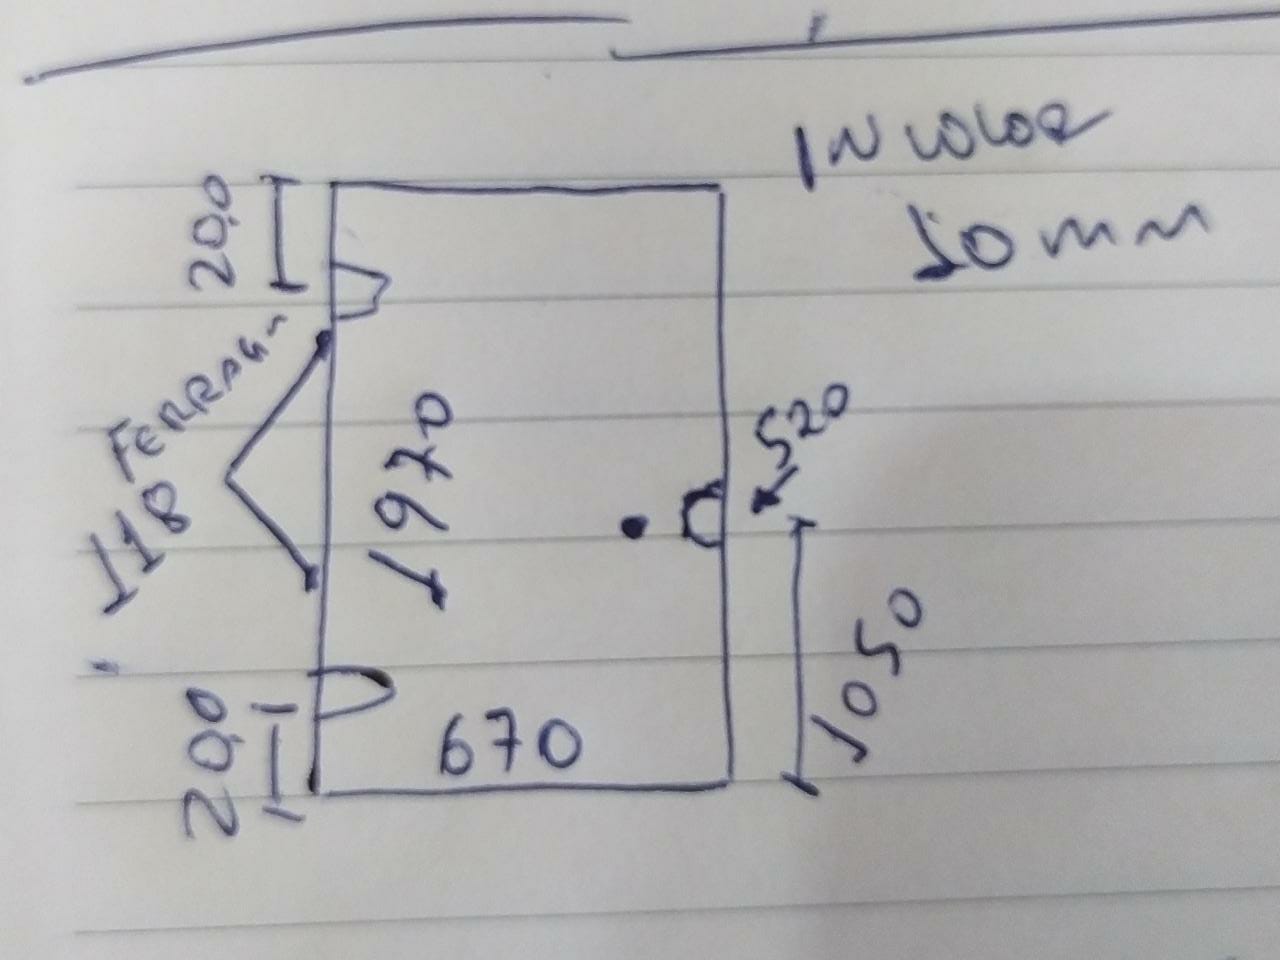 INCOLOR
10 mm
200
FERRAG
118
1970
520
1050
200
670